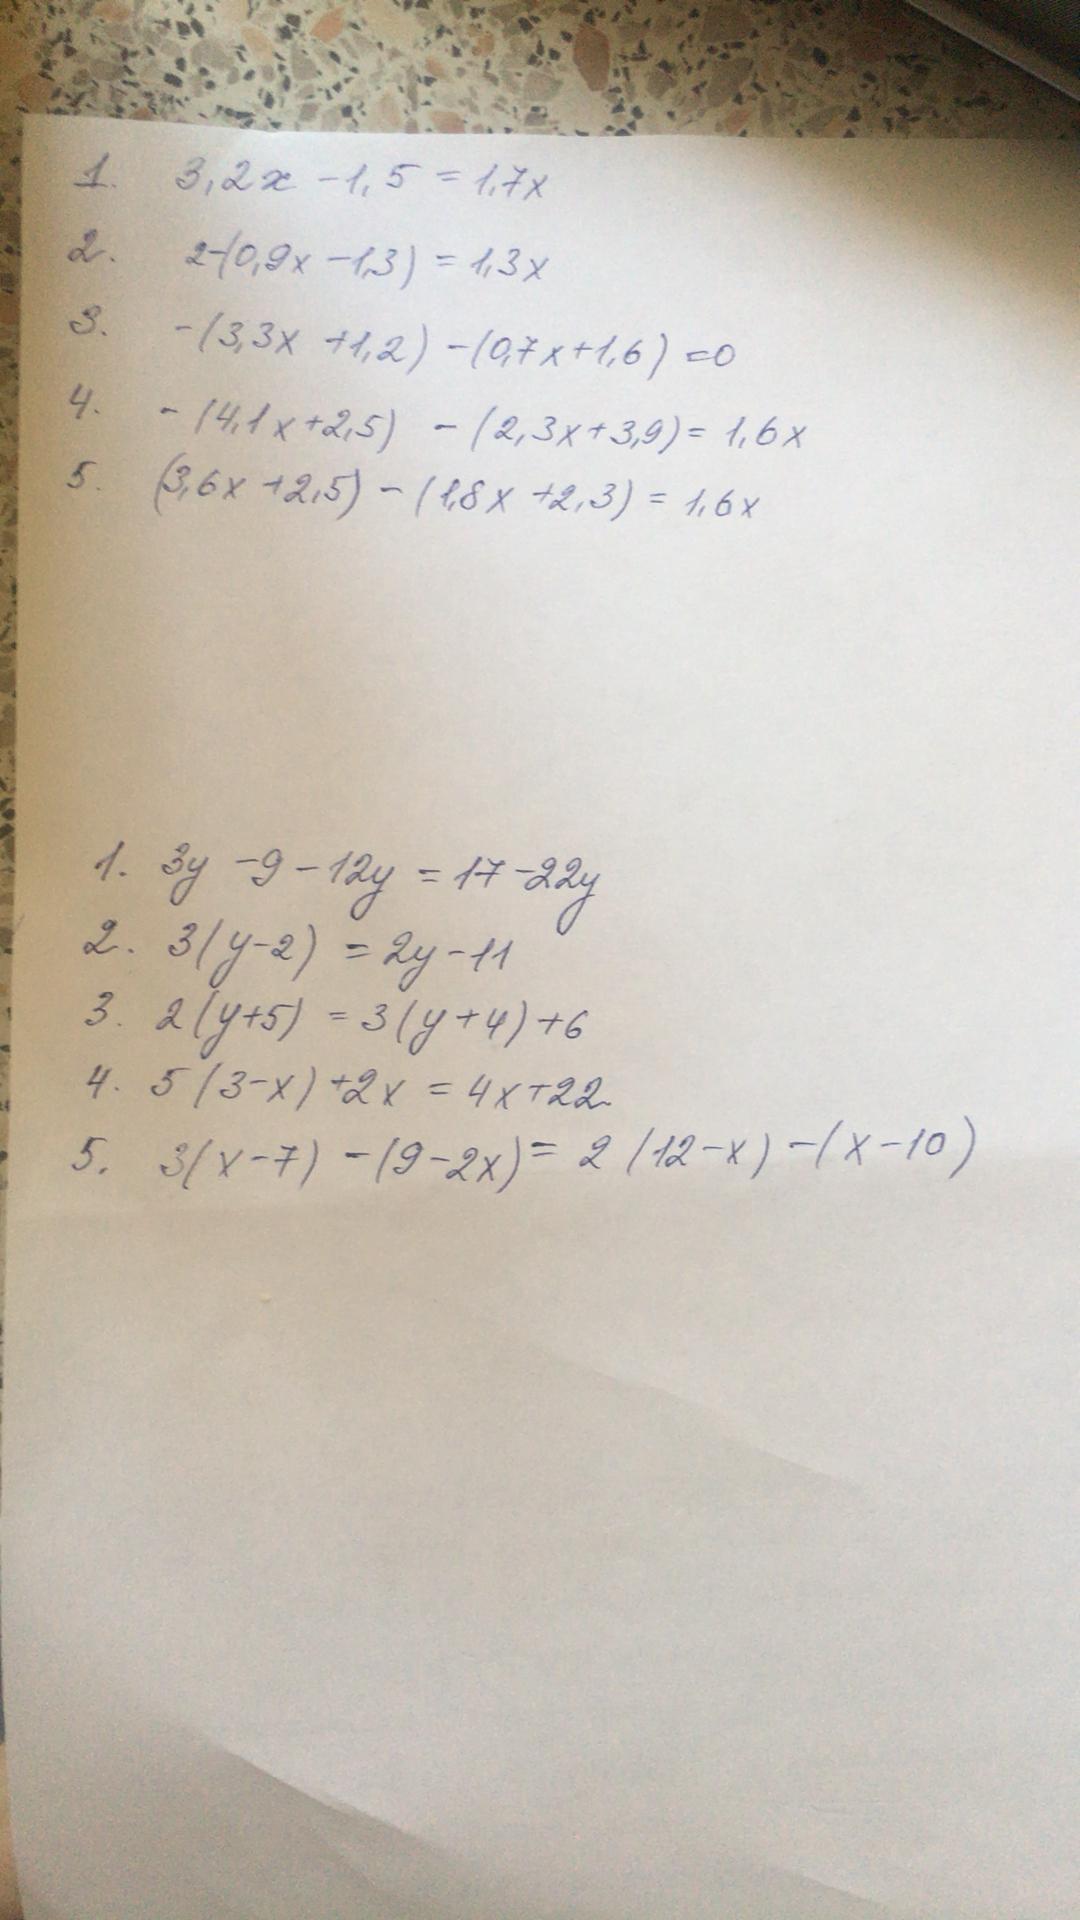 1. 3,2x - 1,5 = 1,7x
2. 2-(0,9x - 1,3) = 1,3x
3. -(3,3x + 1,2) - (0,7x + 1,6) = 0
4. - (4,1x + 2,5) - (2,3x + 3,9) = 1,6x
5. (3,6x + 2,5) - (1,8x + 2,3) = 1,6x
1. 3y - 9 - 12y = 17 - 22y
2. 3(y-2) = 2y - 11
3. 2(y+5) = 3(y+4) + 6
4. 5(3-x) + 2x = 4x + 22
5. 3(x-7) - (9-2x) = 2(12-x) - (x-10)